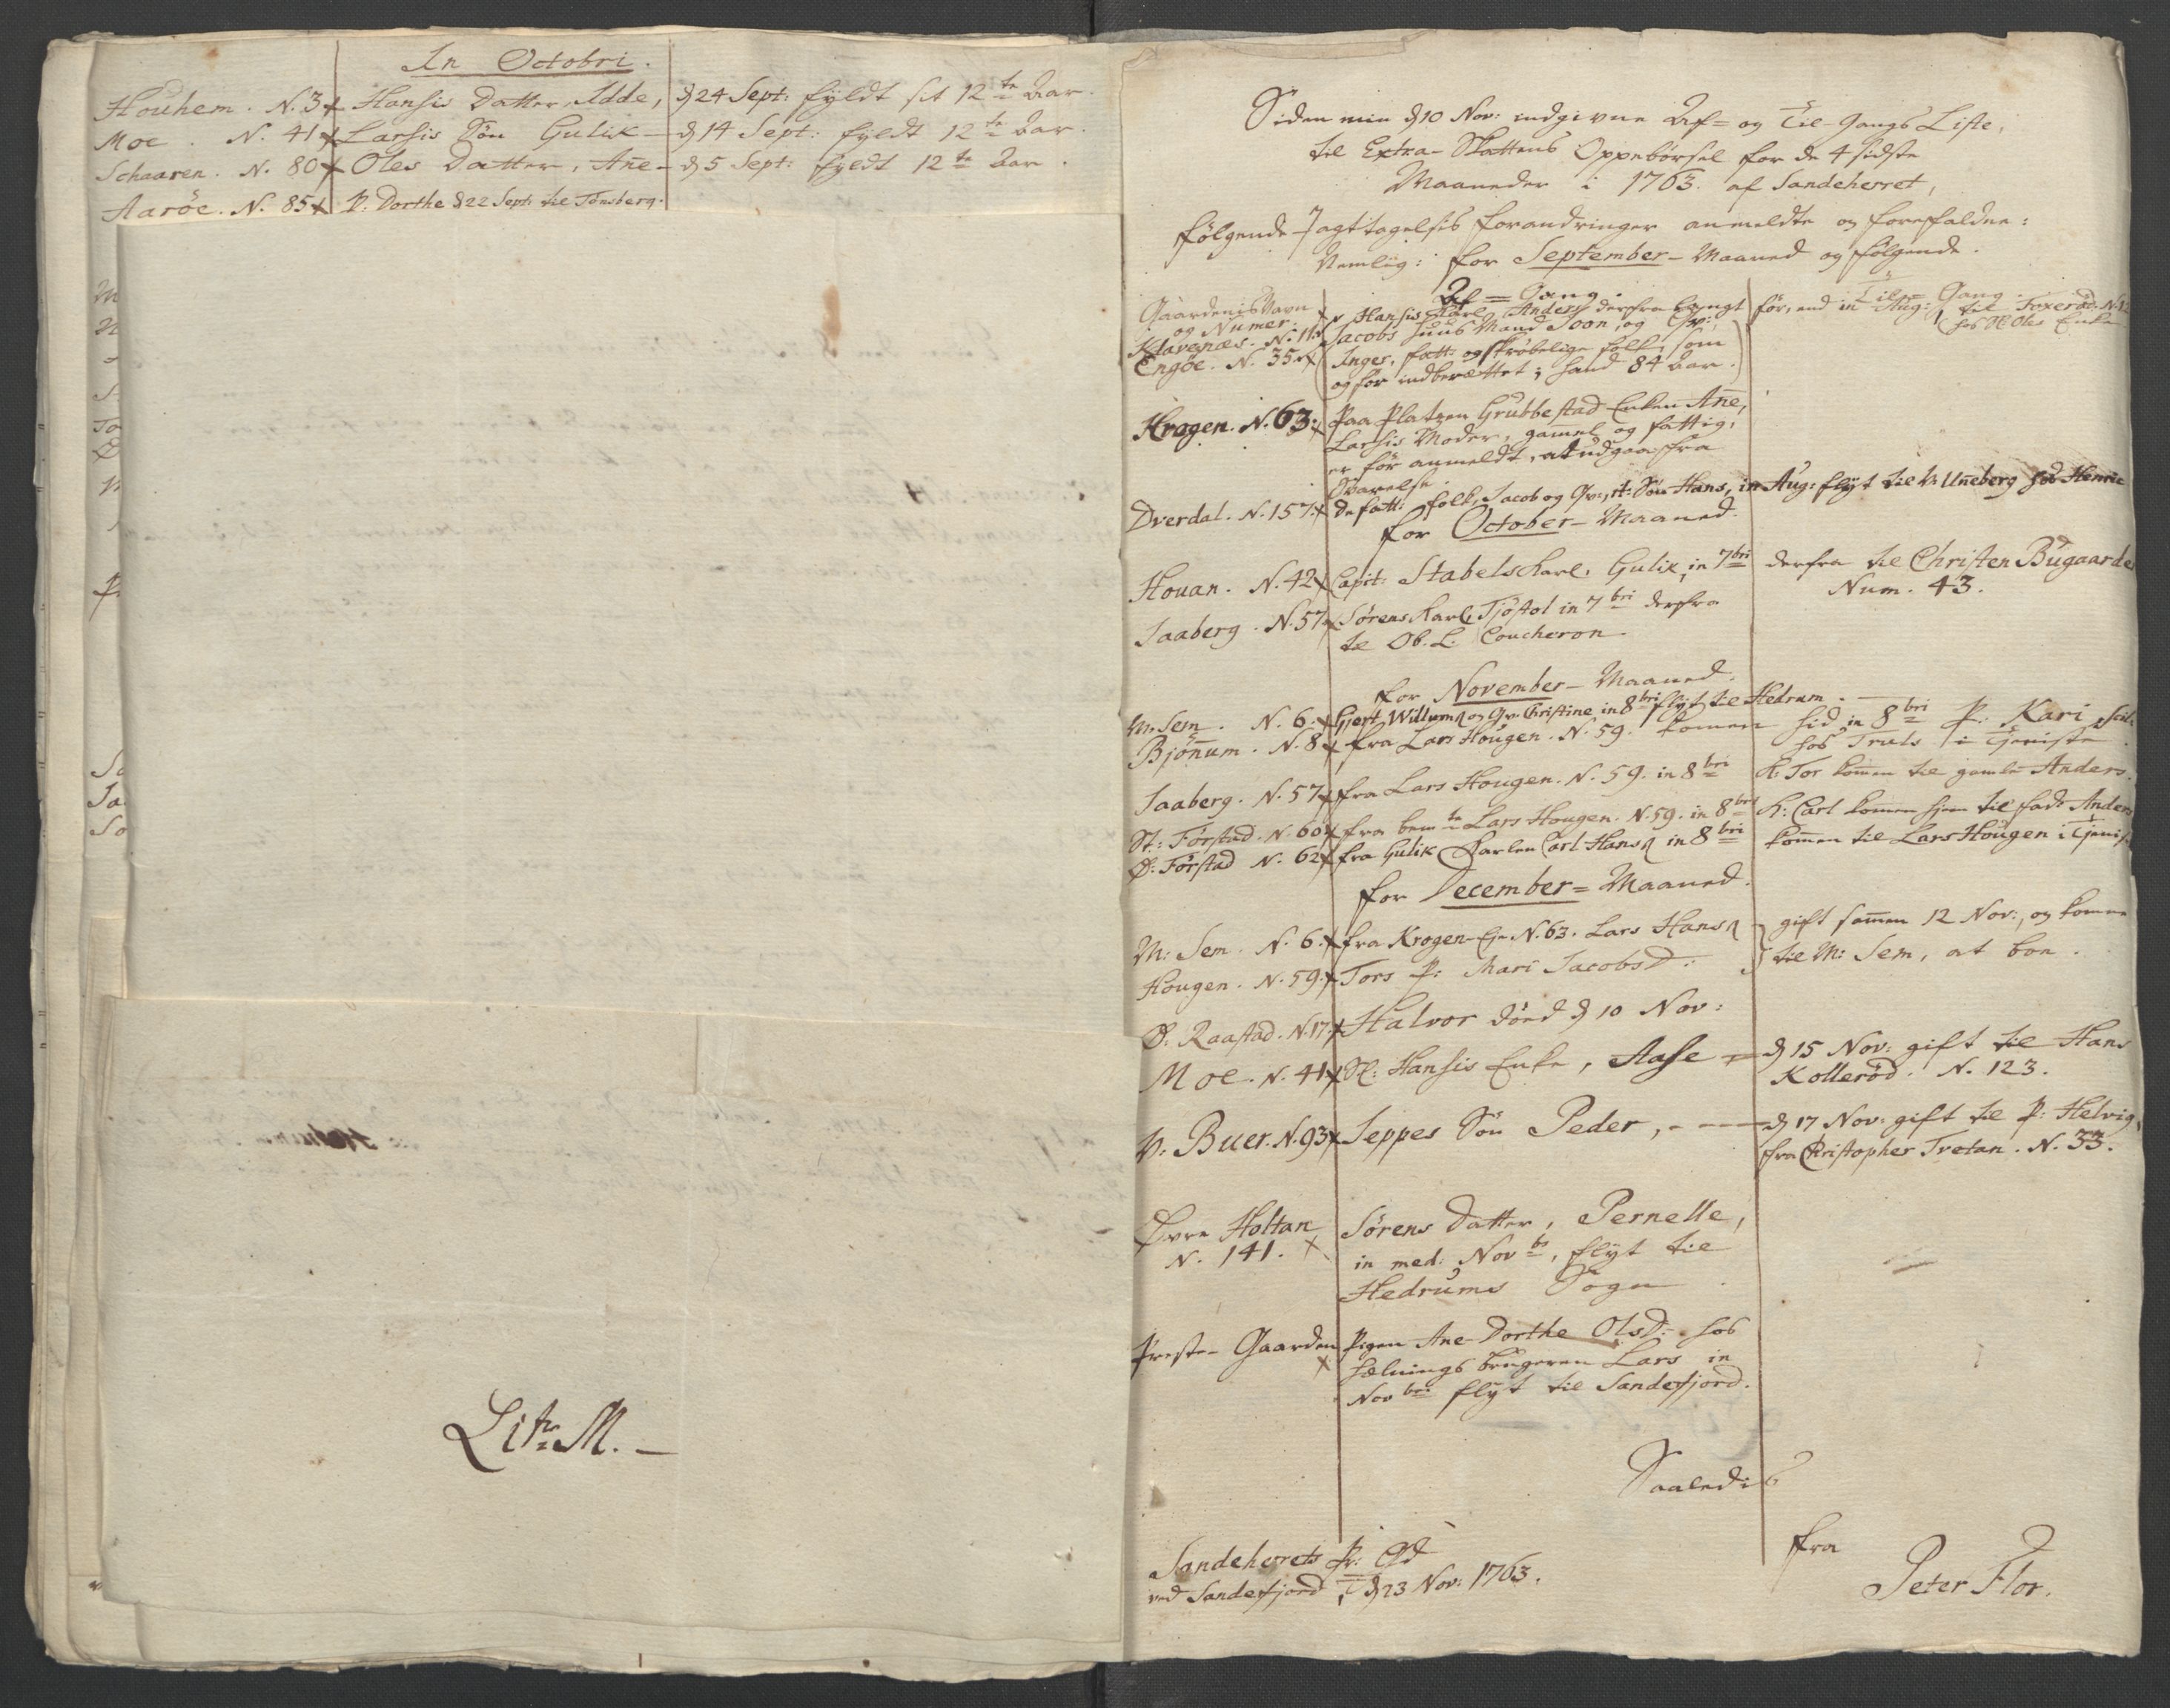 In Octobri.
Houhem. N. 3 Hansis Datter, Idde, d 24 Sept: fyldt sit 12te Aar.
Moe. N. 41 Larsis Søn Gulik - d 14 Sept: fyldt 12te Aar.
Schaaren. N. 80 Oles Datter, Ane - d 5 Sept: fyldt 12te Aar.
Aaröe. N. 85 P. Dorthe d 22 Sept: til Tønsberg.
Litr M. -
Siden min d 10 Nov: indgivne Af= og Til-Gangs Liste,
til Extra-Skattens Oppebörsel for de 4 sidste
Maaneder i 1763. af Sandeherret,
følgende Jagttagelsis forandringer anmeldte og forefaldne:
Nemlig: for September-Maaned og følgende.
Gaardenis Navn
og Numer.
Af=Gang.
Til=Gang.
Klavenæs. N. 11. Hansis Karl, Anders derfra langt før, end in Aug: til Foxeröd. N. 
hos Sl. Oles Enke
Engöe. N. 35. Jacobs Huus Mand Soon, og Qv:,
Inger, fatt: og skröbelige folk, som
og før indberættet; hand 84 Aar.
Kragen. N. 63. Paa Platzen Grubbestad Enken Ane,
Larsis Moder, gamel og fattig,
er før anmeldt, at udgaa fra
Svarelse.
Dverdal. N. 157. De fatt: folk, Jacob og Qv:, st: Søn Hans, in Aug: flyt til N. Uneberg hos Henric
for October-Maaned.
Houan. N. 42 Capit: Stabels Karl, Gulik, in 7bri derfra til Christen Bugaarde
Num. 43.
Jaaberg. N. 57. Sørens Karl, Tjøstol in 7bri derfra
til Ob. L. Coucheron
for November-Maaned.
M. Sem. N. 6. Gjert Willums og Qv: Christine in 8bri flyt til Hedrum.
Bjönum. N. 8 fra Lars Hougen. N. 59. komen hid in 8bri P: Kari,
hos Truls i Tjeniste.
Jaaberg. N. 57 fra Lars Hougen. N. 59. in 8bri K: Tor komen til gamle Anders.
St: Förstad. N. 60 fra bemte Lars Hougen. N. 59. in 8bri K: Carl komen hjem til fad: Anders
Ø: Förstad N. 62 fra Gulik Karlen Carl Hans in 8bri komen til Lars Hougen i Tjenist.
for December=Maaned.
M: Sem. N. 6. fra Krogen-Eje N. 63. Lars Hans gift samen 12 Nov:, og komen
Hougen. N. 59. Tors P: Mari Jacobsd: til M: Sem, at boe.
Ø. Raastad. N. 17. Halvor döed d 10 Nov:
Moe. N. 41 Sl: Hansis Enke, Aase - d 15 Nov: gift til Hans
Kolleröd. N. 123.
V: Buer. N. 93 Jeppes Søn Peder, - - - d 17 Nov: gift til P: Helvig,
fra Christopher Tvetan. N. 33.
Øvre Holtan
N. 141.
Sørens Datter, Pernelle,
in med: Novbr, flyt til
Hedrums Sogn.
Preste-Gaarden Pigen Ane-Dorthe Olsd: hos
Hælnings brugeren Lars in
Novbri flyt til Sandefjord.
Saaledis
fra
Sandeherrets Pr: Gd
ved Sandefjord, d 23 Nov: 1763.
Peter Flor.